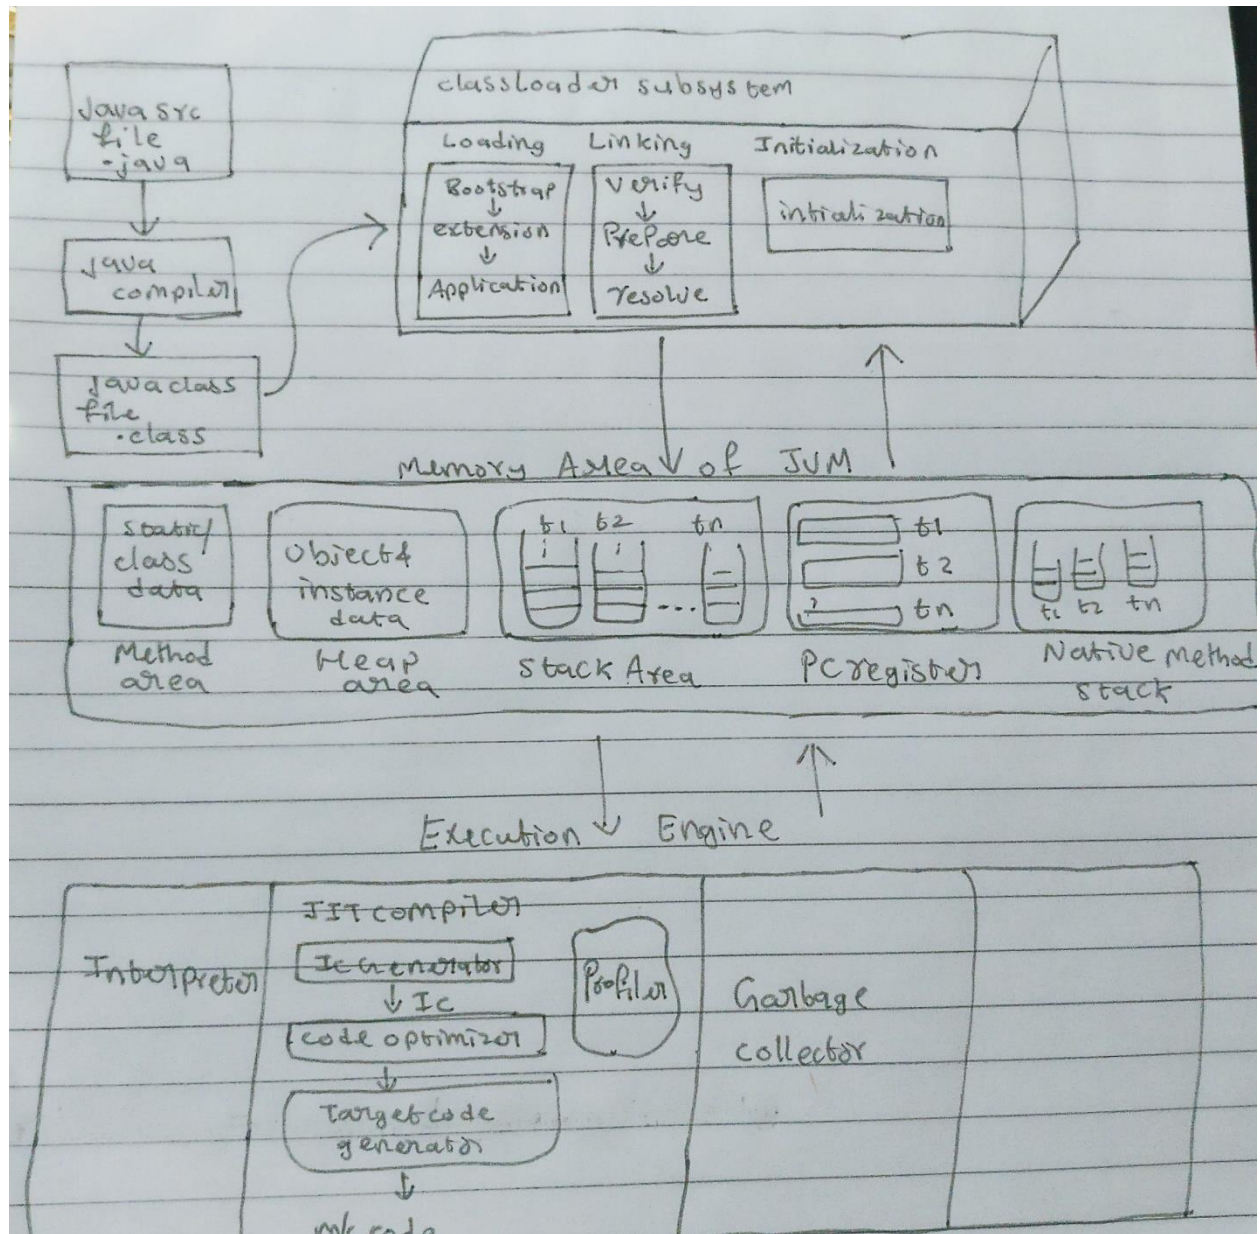 Java src
file
.java
java
compiler
Java class
file
.class
classLoader subsystem
Loading
Bootstrap
extension
Application
Linking
Verify
Prepare
resolve
Initialization
intialization
Memory Area of JVM
static/
class
data
Method
area
object &
instance
data
Heap
area
t1 t2 tn
...
Stack Area
t1
t2
tn
PC register
t1 t2 tn
Native Method
stack
Execution Engine
Interpreter
JIT compiler
Ic Generator
Ic
code optimizer
Target code
generator
m/c code
Profiler
Garbage
collector